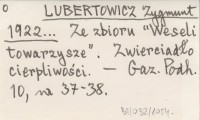 o LUBERTOWICZ Zygmunt
1922... Ze zbioru "Weseli
towarzysze". Zwierciadło
cierpliwości. — Gaz. Podh.
10, na 37-38.